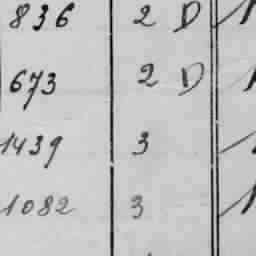 836 2 D
673 2 D
1439 3
1082 3